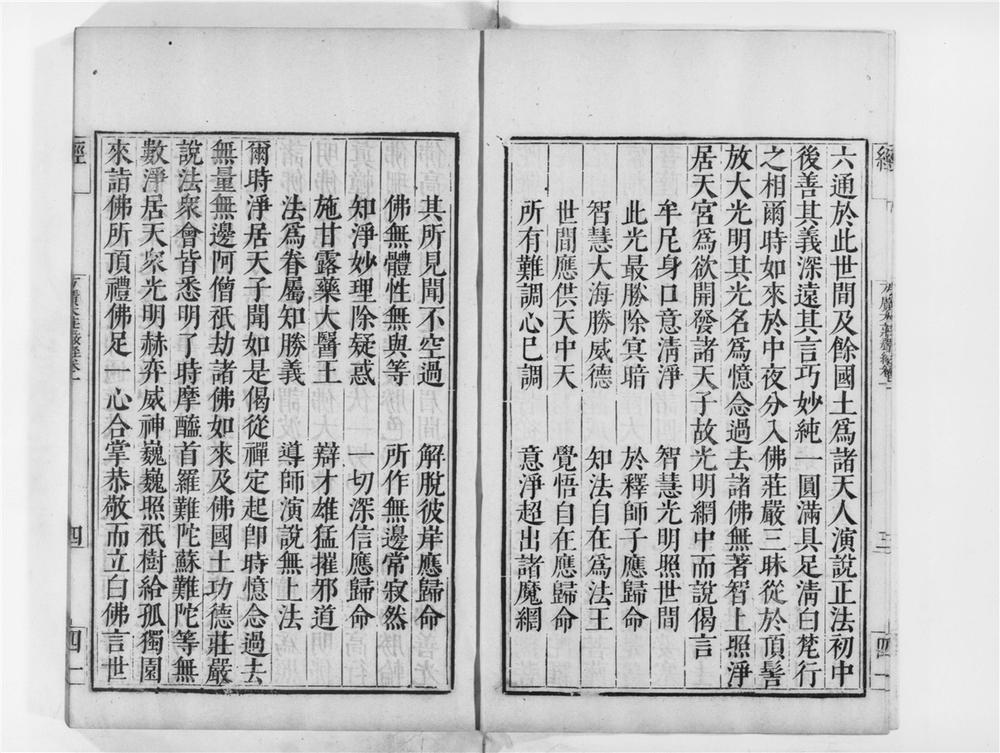 六通於此世間及餘國土爲諸天人演說正法初中
後善其義深遠其言巧妙純一圓滿具足清白梵行
之相爾時如來於中夜分入佛莊嚴三昧從於頂髻
放大光明其光名爲憶念過去諸佛無著智上照淨
居天宮爲欲開發諸天子故光明網中而說偈言
牟尼身口意清淨　智慧光明照世間
此光最勝除冥暗　於釋師子應歸命
智慧大海勝威德　知法自在爲法王
世間應供天中天　覺悟自在應歸命
所有難調心已調　意淨超出諸魔網
其所見聞不空過　解脫彼岸應歸命
佛無體性無與等　所作無邊常寂然
知淨妙理除疑惑　一切深信應歸命
施甘露藥大醫王　辯才雄猛摧邪道
法爲眷屬知勝義　導師演說無上法
爾時淨居天子聞如是偈從禪定起卽時憶念過去
無量無邊阿僧祇劫諸佛如來及佛國土功德莊嚴
說法衆會皆悉明了時摩醯首羅難陀蘇難陀等無
數淨居天衆光明赫弈威神巍巍照祇樹給孤獨園
來詣佛所頂禮佛足一心合掌恭敬而立白佛言世
經
三
四
經
四
四一